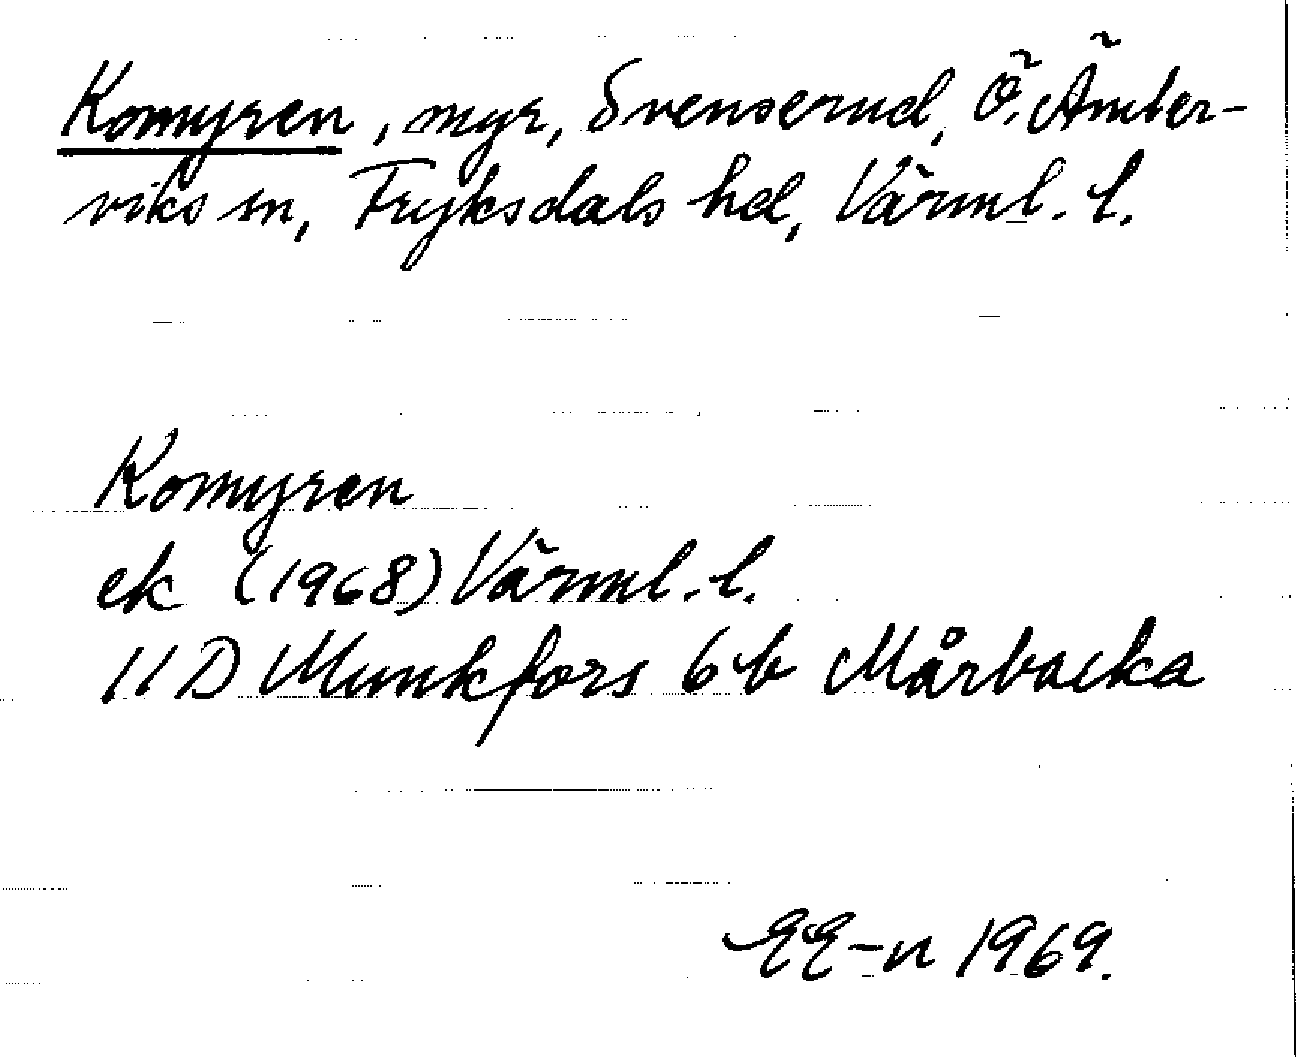 Komyren, myr, Svenserud, Ö. Ämter-
viks sn, Fryksdals hd, Värml. l.
Komyren
ek (1968) Värml. l.
11 D Munkfors 6 b Mårbacka
EE-n 1969.